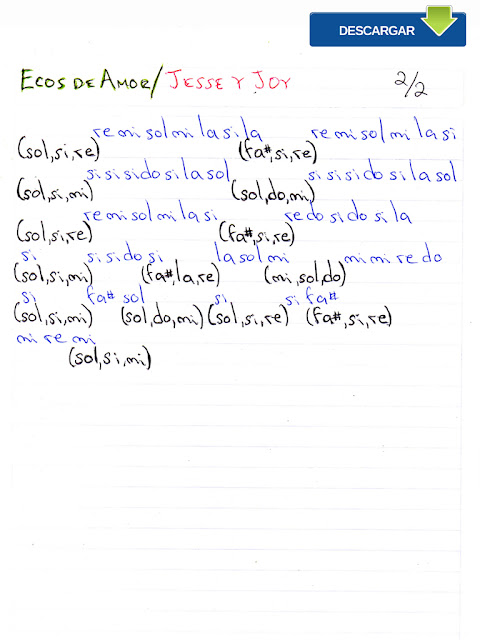 DESCARGAR
ECOS DE AMOR/JESSE Y JOY 2/2
re mi sol mi la si la re mi sol mi la si
(sol,si,re) (fa#,si,re)
si si si do si la sol si si si do si la sol
(sol,si,mi) (sol,do,mi)
re mi sol mi la si re do si do si la
(sol,si,re) (fa#,si,re)
si si si do si la sol mi mi mi re do
(sol,si,mi) (fa#,la,re) (mi,sol,do)
si fa# sol si si fa#
(sol,si,mi) (sol,do,mi) (sol,si,re) (fa#,si,re)
mi re mi
(sol,si,mi)